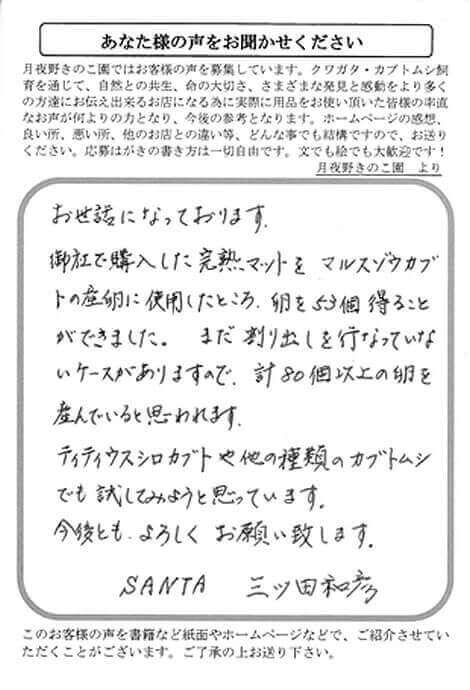 あなた様の声をお聞かせください
月夜野きのこ園ではお客様の声を募集しています。クワガタ・カブトムシ飼
育を通じて、自然との共生、命の大切さ、さまざまな発見と感動をより多く
の方達にお伝え出来るお店になる為に実際に用品をお使い頂いた皆様の率直
なお声が何よりの力となり、今後の参考となります。ホームページの感想、
良い所、悪い所、他のお店との違い等、どんな事でも結構ですので、お送り
ください。応募はがきの書き方は一切自由です。文でも絵でも大歓迎です！
月夜野きのこ園 より
お世話になっております。
御社で購入した完熟マットを マルスゾウカブ
トの産卵に使用したところ、卵を53個得ること
ができました。 まだ割り出しを行なっていな
いケースがありますので、計80個以上の卵を
産んでいると思われます。
ティティウスシロカブトや他の種類のカブトムシ
でも試してみようと思っています。
今後とも、よろしく お願い致します。
SANTA 三ツ田和彦
このお客様の声を書籍など紙面やホームページなどで、ご紹介させてい
ただくことがございます。ご了承の上お送り下さい。